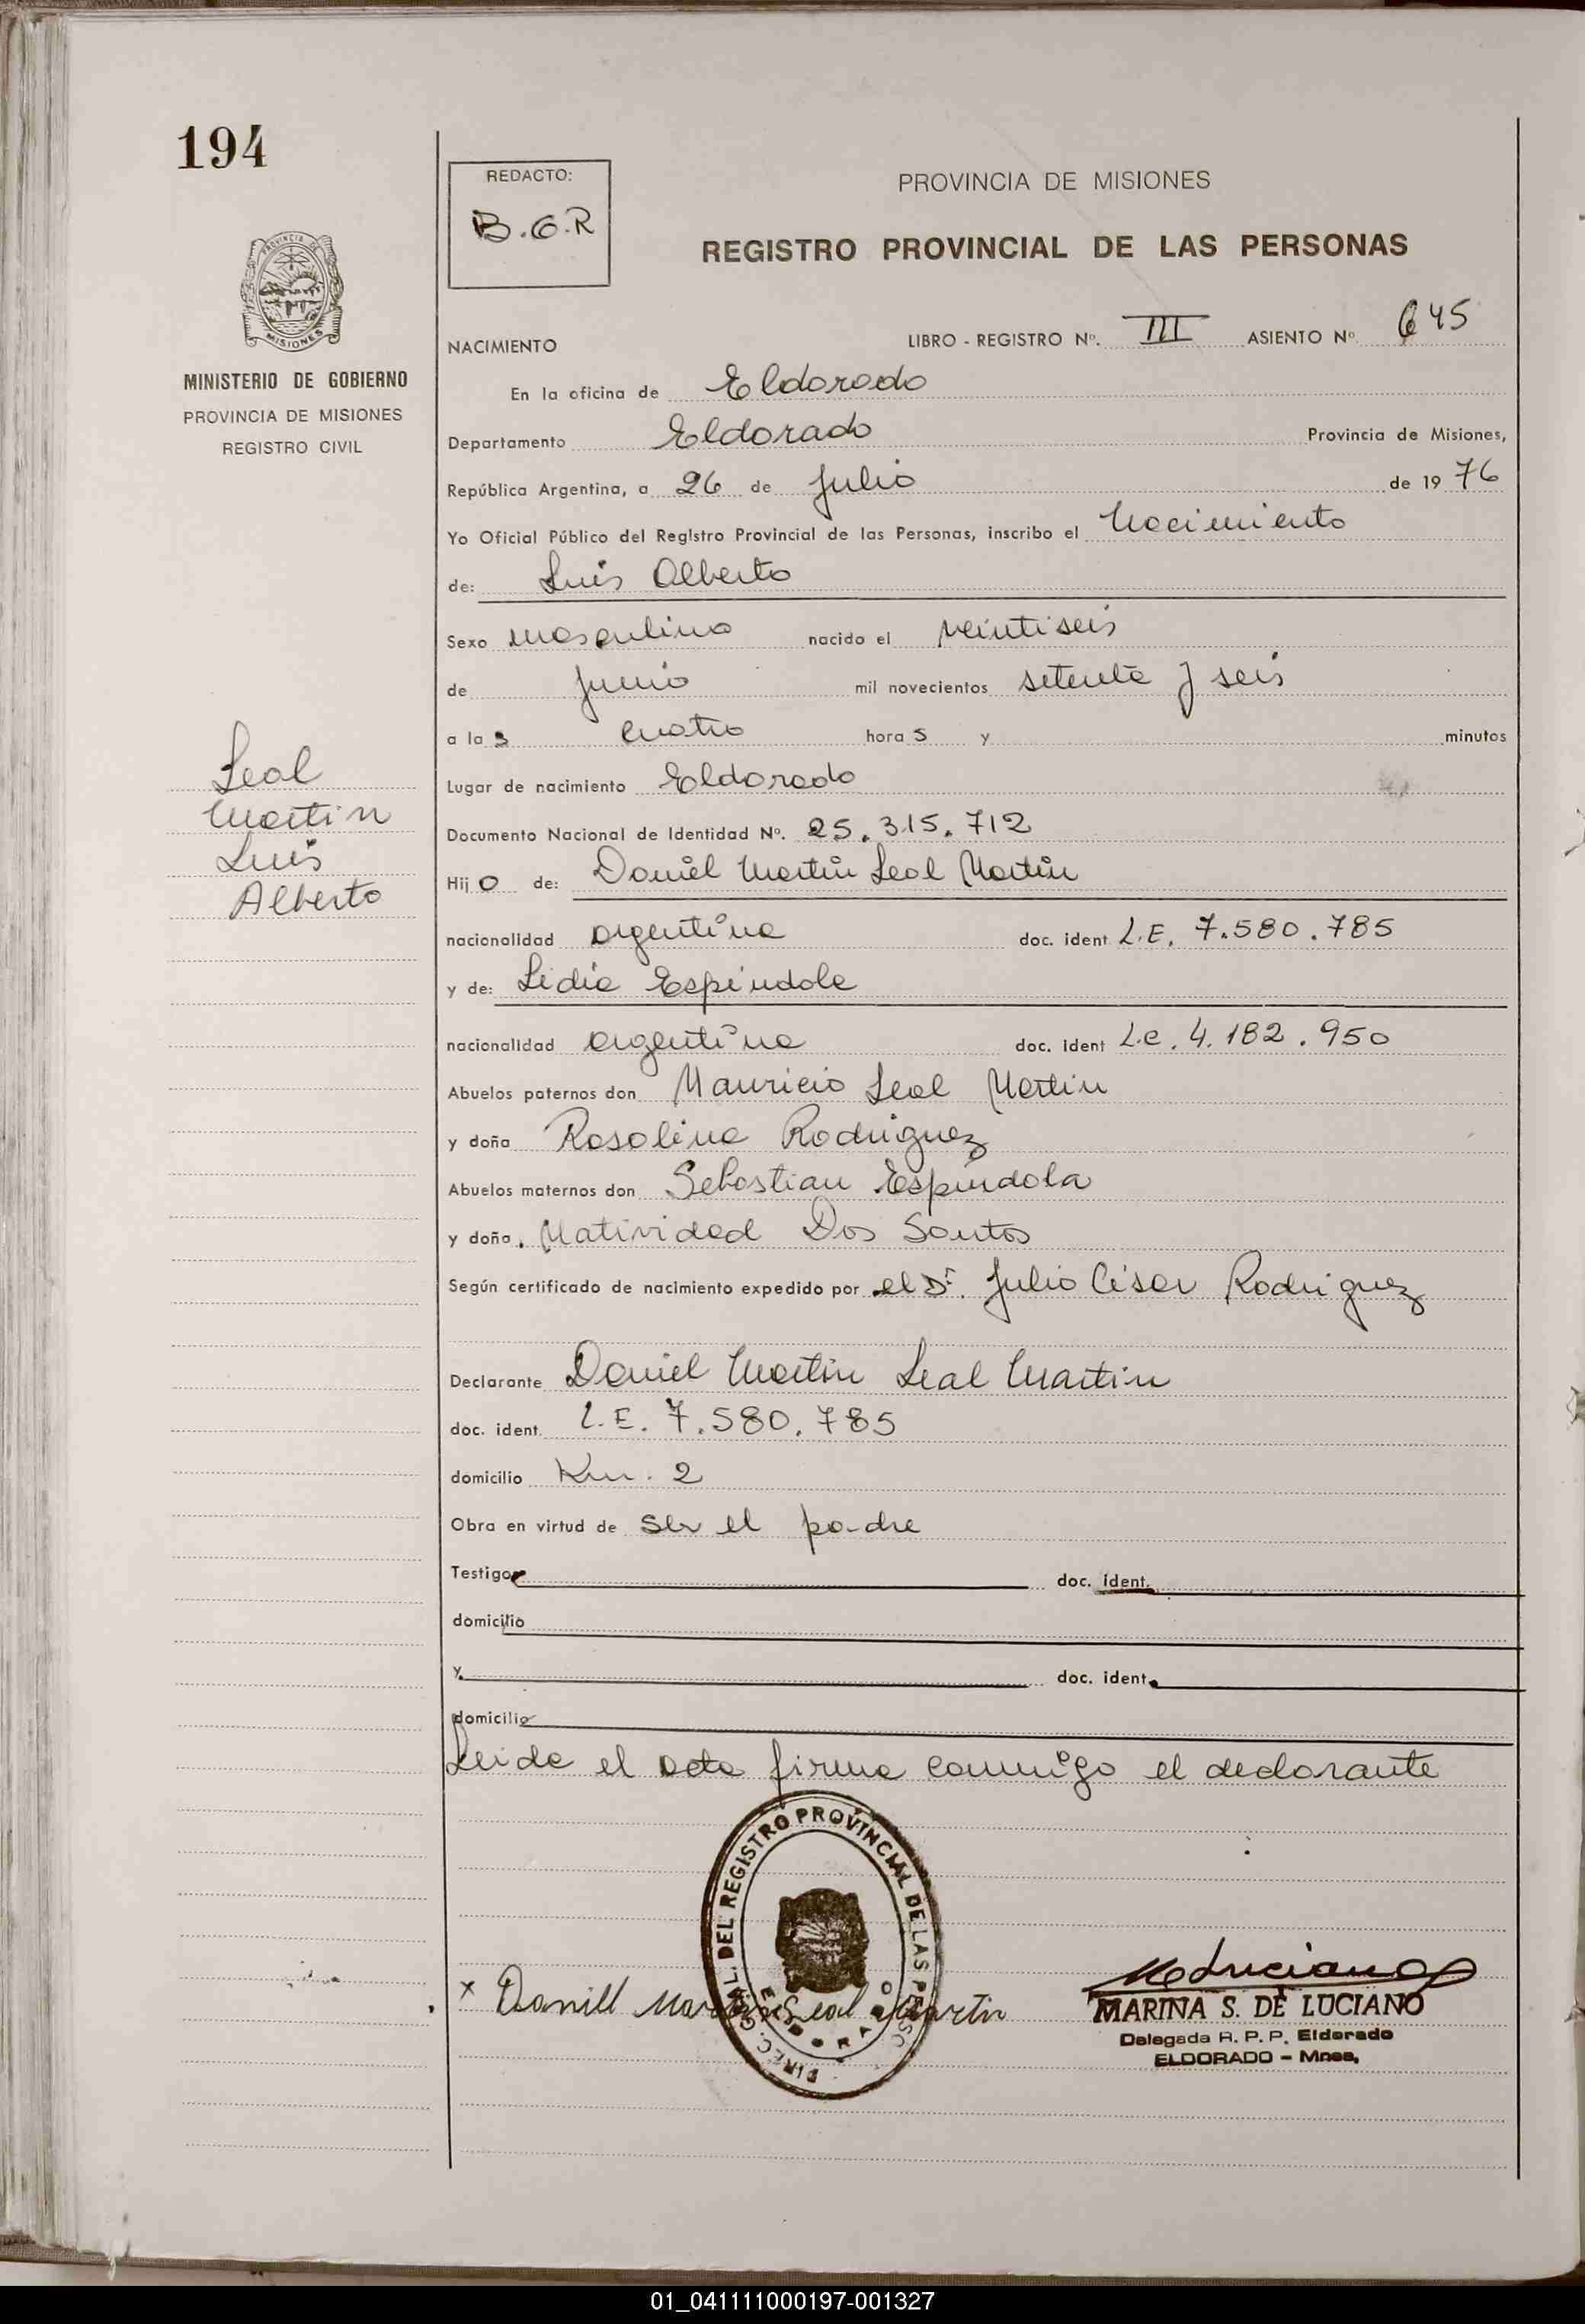 194
REDACTO:
B.G.R
PROVINCIA DE MISIONES
REGISTRO PROVINCIAL DE LAS PERSONAS
MISIONES
MINISTERIO DE GOBIERNO
PROVINCIA DE MISIONES
REGISTRO CIVIL
NACIMIENTO LIBRO - REGISTRO Nº. III ASIENTO Nº 645
En la oficina de Eldorado
Departamento Eldorado Provincia de Misiones,
República Argentina, a 26 de Julio de 1976
Yo Oficial Público del Registro Provincial de las Personas, inscribo el Nacimiento
de: Luis Alberto
Sexo masculino nacido el veintiseis
de Junio mil novecientos setenta y seis
a las cuatro horas y minutos
Lugar de nacimiento Eldorado
Documento Nacional de Identidad Nº. 25.315.712
Leal
Martin
Luis
Alberto
Hijo de: Daniel Martin Leal Martin
nacionalidad argentina doc. ident L.E. 7.580.785
y de: Lidia Espindola
nacionalidad argentina doc. ident L.C. 4.182.950
Abuelos paternos don Mauricio Leal Martin
y doña Rosalina Rodriguez
Abuelos maternos don Sebastian Espindola
y doña Natividad Dos Santos
Según certificado de nacimiento expedido por el Dr. Julio César Rodriguez
Declarante Daniel Martin Leal Martin
doc. ident. L.E. 7.580.785
domicilio Km. 2
Obra en virtud de ser el padre
Testigo doc. ident.
domicilio
y doc. ident.
domicilio
Leida el acta firma conmigo el declarante
DIREC. GRAL. DEL REGISTRO PROVINCIAL DE LAS PERSO
ELDORADO
x Danill Martin Leal Martin
M de Luciano
MARINA S. DE LUCIANO
Delegada R. P. P. Eldorado
ELDORADO - Mnes,
01_041111000197-001327